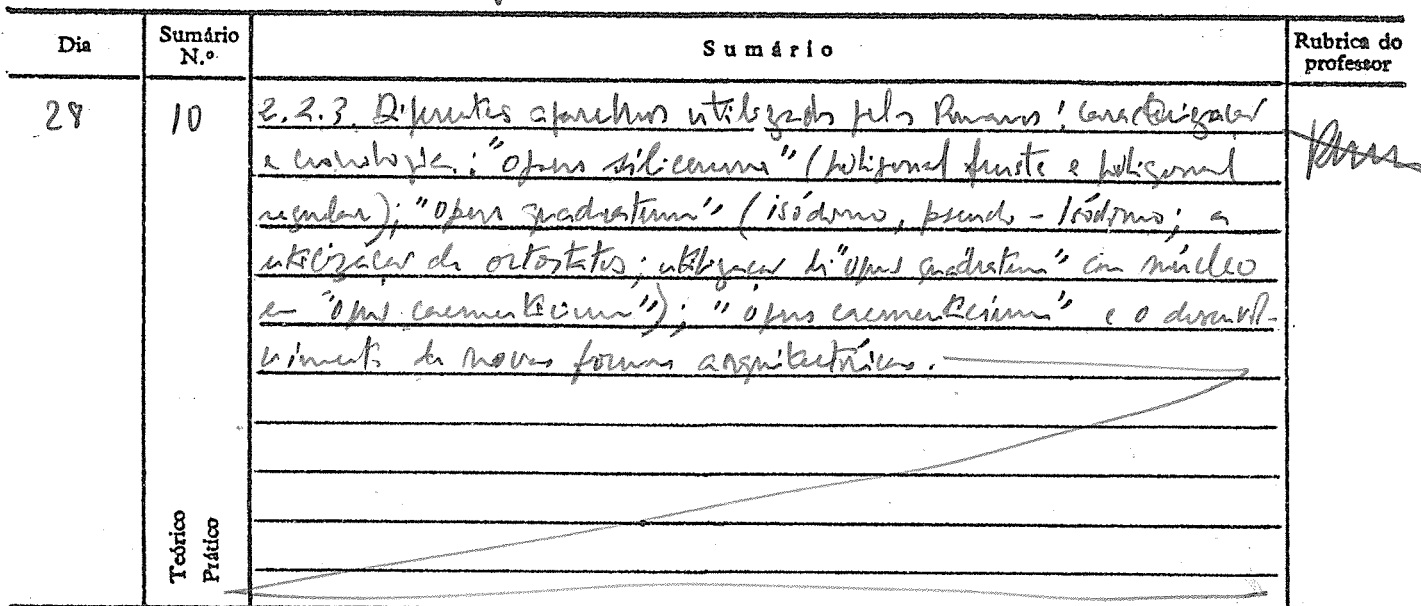 Dia
Sumário N.º
Sumário
Rubrica do professor
28
10
2.2.3. Diferentes aparelhos utilizados pelos Romanos: caracterização
e cronologia: "opus siliceum" (poligonal fruste e poligonal
regular); "opus quadratum" (isódomo, pseudo-isódomo; a
utilização de ortostatos; utilização di "opus quadratum" com núcleo
em "opus caementicium"); "opus caementicium" e o desenvol-
vimento de novas formas arquitectónicas.
Teórico
Prático